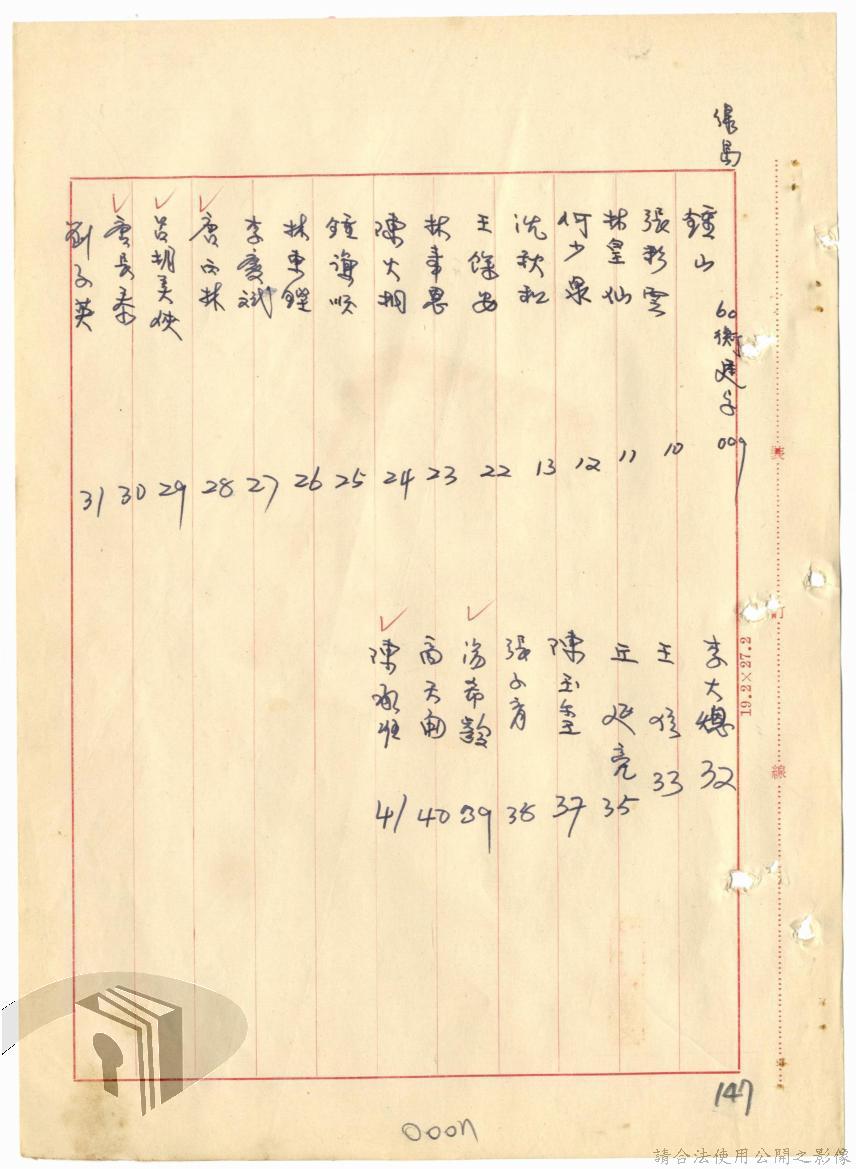 綠島
鍾山 60衡建字 009
張彩雲 10
林皇仙 11
何少泉 12
沈秋松 13
王餘安 22
林聿恩 23
陳火桐 24
鍾謙順 25
林東鏗 26
李慶斌 27
唐 林 28
呂胡美俠 29
唐長泰 30
劉子英 31
李大 32
王 33
丘延亮 35
陳玉 37
張 38
湯希 39
高天 40
陳 41
裝
訂
線
19.2×27.2
147
0004
請合法使用公開之影像